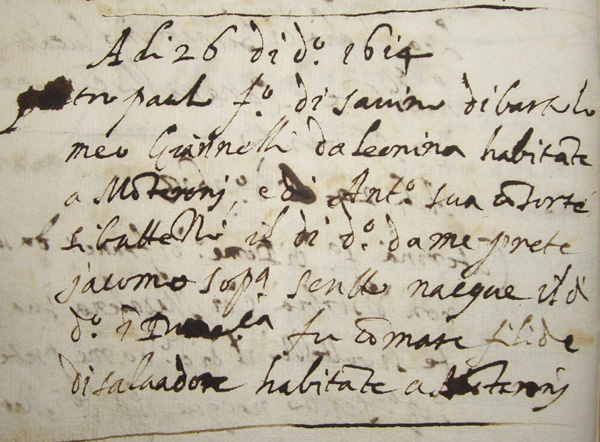 A di 26 di d.º 1614
pietro paul f.º di savino di bartolo
meo Giannelli da leonina habitāte
a Mōteroni, e di Ant.ª sua cōsorte
si battezzò il di d.º da me prete
jacomo sop.ª scritto nacque il dì
d.º fu comare filide
di salvadore habitāte a Mōteroni